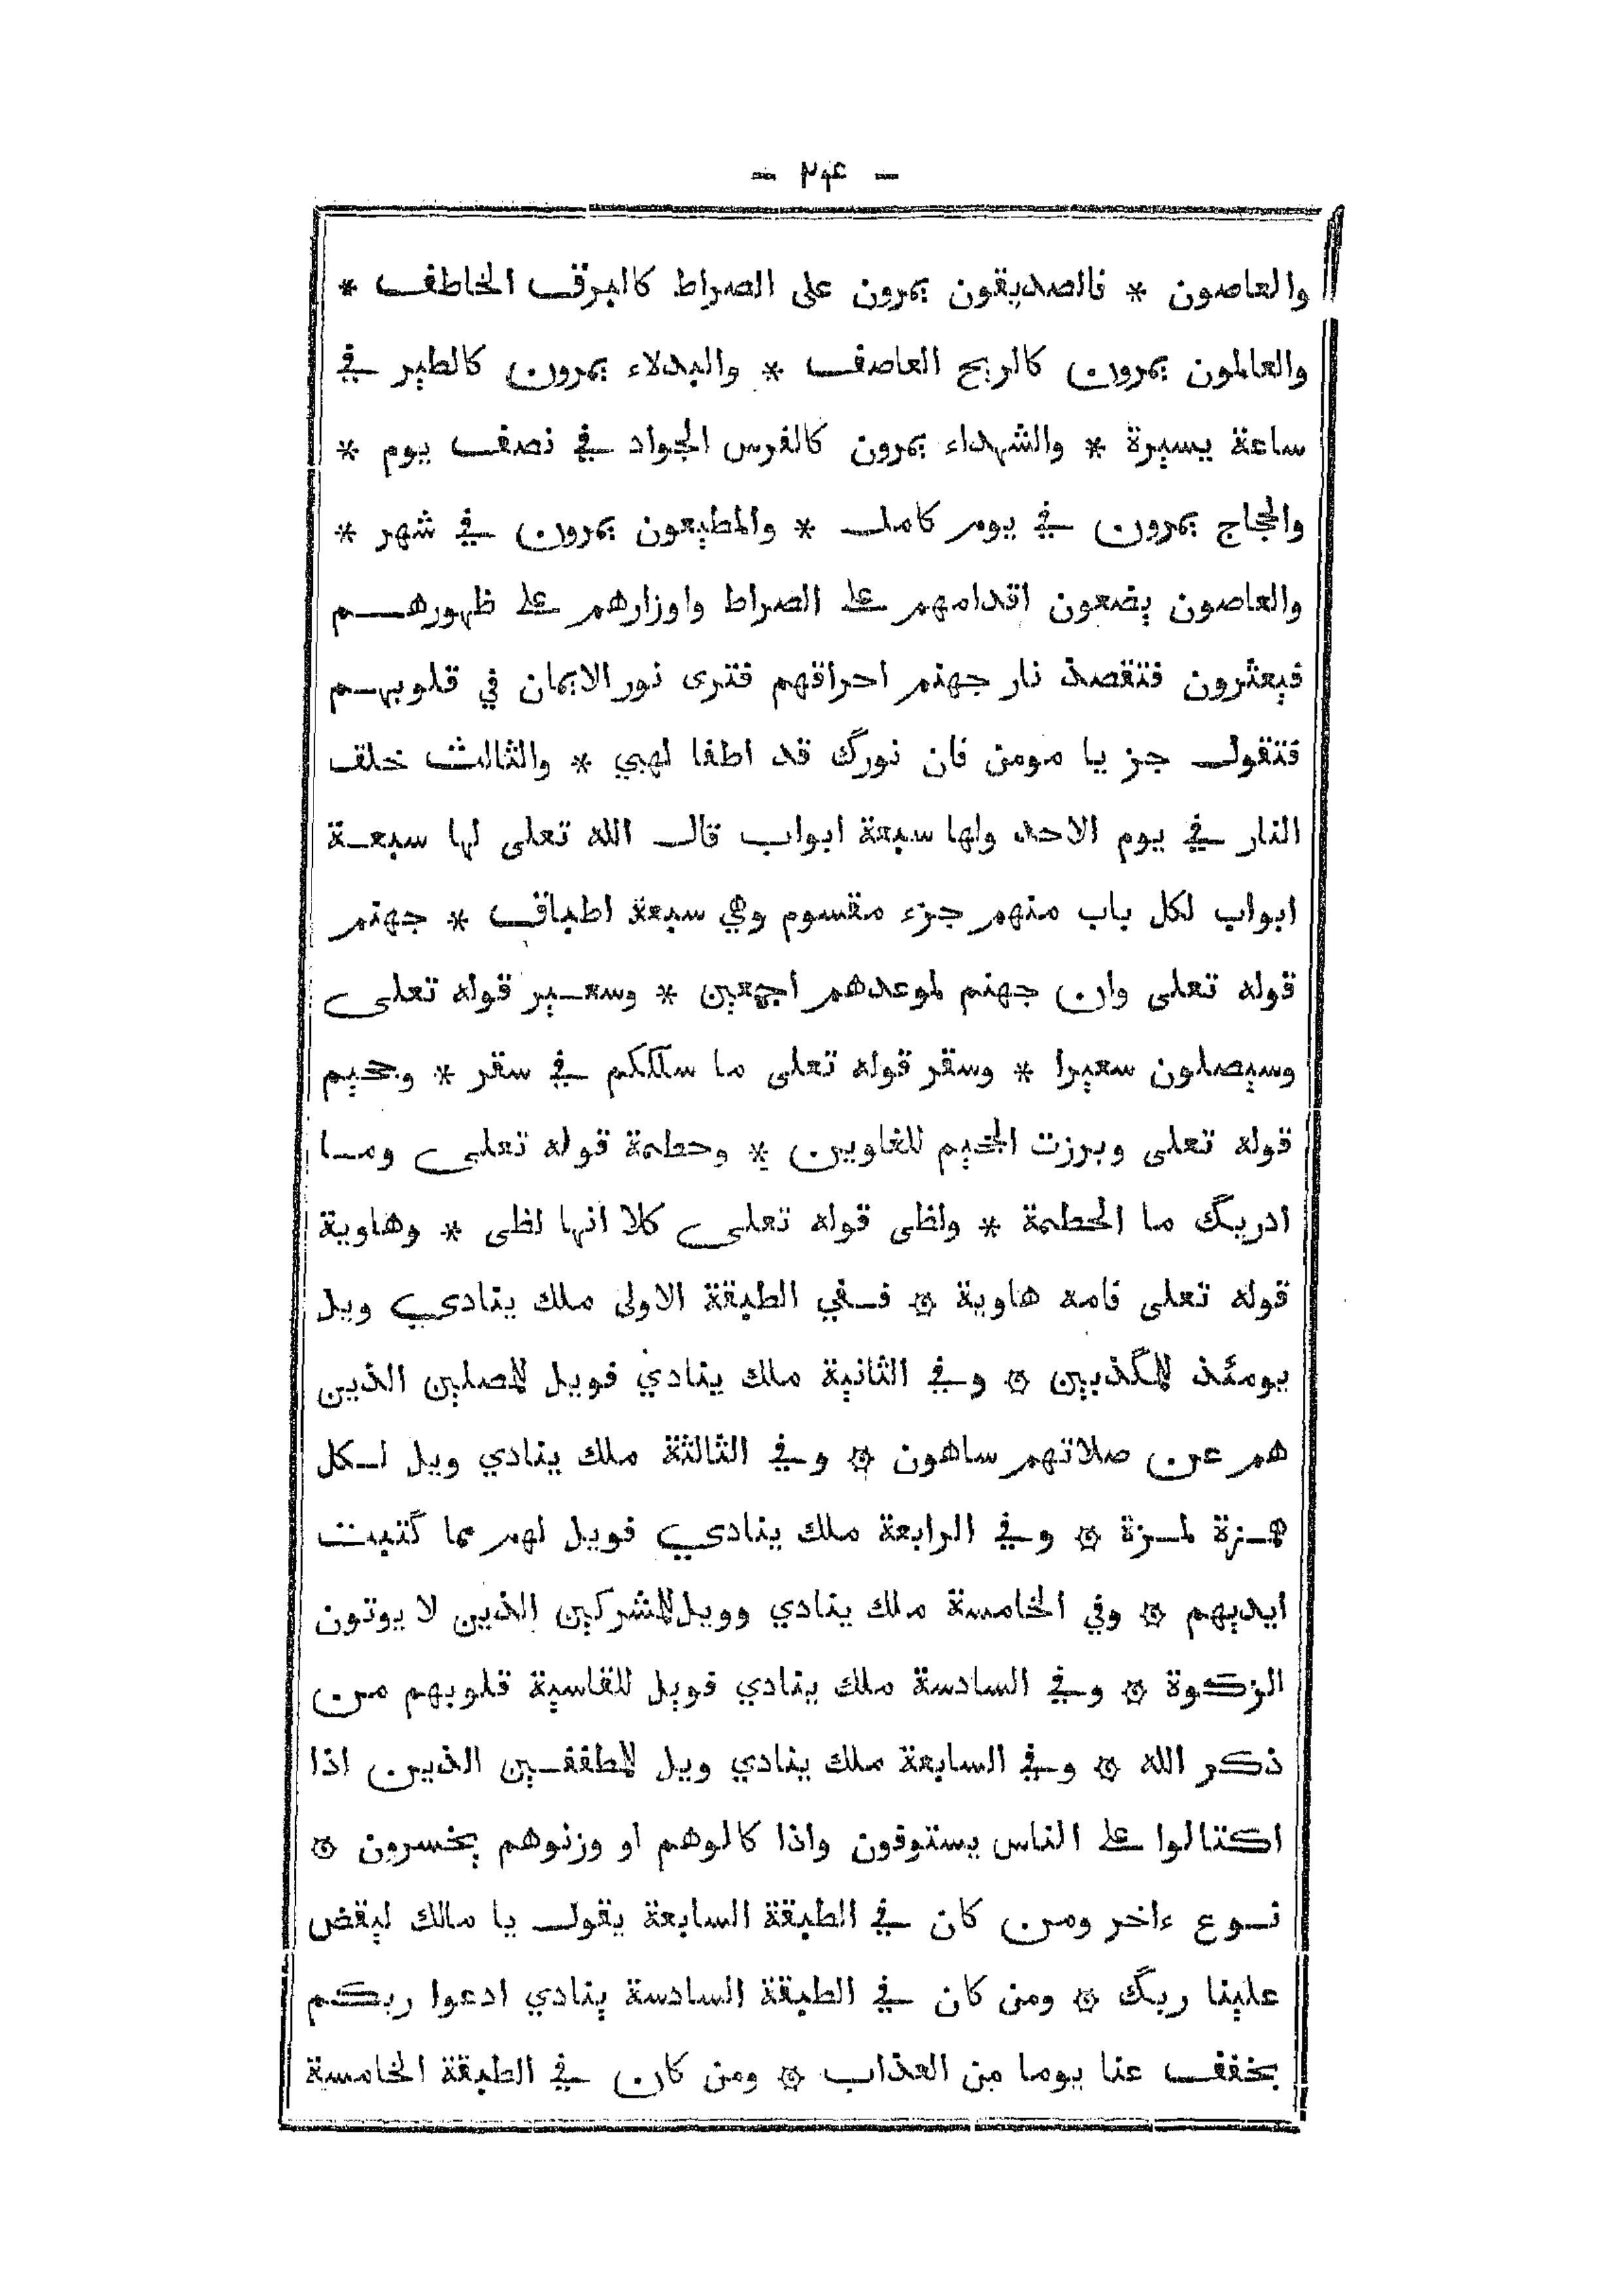 - ٢٤ -
والعاصون * فالصديقون يمرون على الصراط كالبرق الخاطف *
والعالمون يمرون كالريح العاصف * والبدلاء يمرون كالطير في
ساعة يسيرة * والشهداء يمرون كالفرس الجواد في نصف يوم *
والحجاج يمرون في يوم كامل * والمطيعون يمرون في شهر *
والعاصون يضعون اقدامهم على الصراط واوزارهم على ظهورهم
فيعثرون فتقصد نار جهنم احراقهم فترى نور الايمان في قلوبهم
فتقول جز يا مومن فان نورك قد اطفا لهبي * والثالث خلق
النار في يوم الاحد ولها سبعة ابواب قال الله تعلى لها سبعة
ابواب لكل باب منهم جزء مقسوم وهي سبعة اطباق * جهنم
قوله تعلى وان جهنم لموعدهم اجمعين * وسعير قوله تعلى
وسيصلون سعيرا * وسقر قوله تعلى ما سلككم في سقر * وجحيم
قوله تعلى وبرزت الجحيم للغاوين * وحطمة قوله تعلى وما
ادريك ما الحطمة * ولظى قوله تعلى كلا انها لظى * وهاوية
قوله تعلى فامه هاوية ۞ ففي الطبقة الاولى ملك ينادي ويل
يومئذ للمكذبين ۞ وفي الثانية ملك ينادي فويل للمصلين الذين
هم عن صلاتهم ساهون ۞ وفي الثالثة ملك ينادي ويل لكل
همزة لمزة ۞ وفي الرابعة ملك ينادي فويل لهم مما كتبت
ايديهم ۞ وفي الخامسة ملك ينادي وويل للمشركين الذين لا يوتون
الزكوة ۞ وفي السادسة ملك ينادي فويل للقاسية قلوبهم من
ذكر الله ۞ وفي السابعة ملك ينادي ويل للمطففين الذين اذا
اكتالوا على الناس يستوفون واذا كالوهم او وزنوهم يخسرون ۞
نوع ءاخر ومن كان في الطبقة السابعة يقول يا مالك ليقض
علينا ربك ۞ ومن كان في الطبقة السادسة ينادي ادعوا ربكم
يخفف عنا يوما من العذاب ۞ ومن كان في الطبقة الخامسة